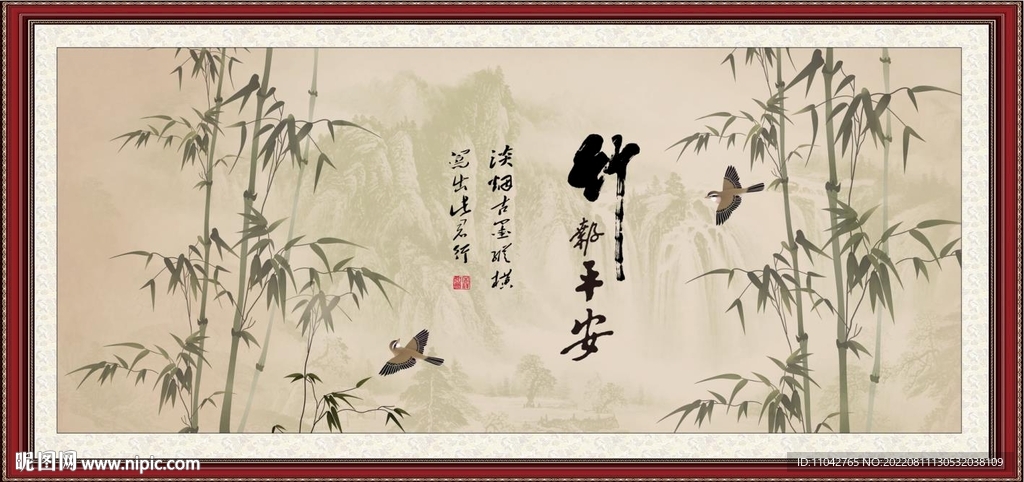 竹
報平安
淡烟古墨縱橫
寫出此君行
昵图网 www.nipic.com
ID:11042765 NO:20220811130532038109